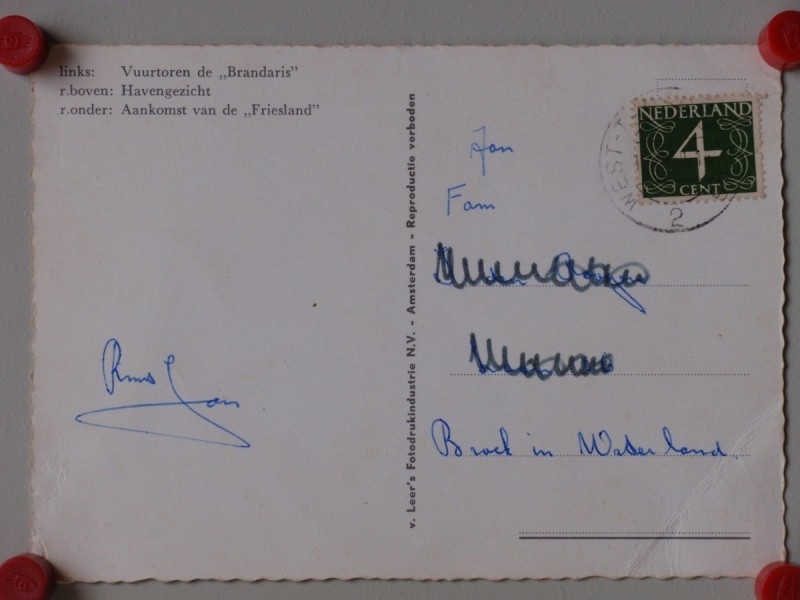 links: Vuurtoren de „Brandaris"
r.boven: Havengezicht
r.onder: Aankomst van de „Friesland"
v. Leer's Fotodrukindustrie N.V. - Amsterdam - Reproductie verboden
NEDERLAND
4
CENT
WEST-T
2
Jan
Fam
Broek in Waterland.